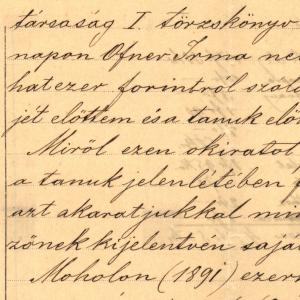 társaság I. törzskönyv
napon Ofner Irma ne
hatezer forintról szol
jét előttem és a tanuk elő
Miről ezen okiratot
a tanuk jelenlétében
azt akaratjukkal mi
zőnek kijelentvén sajá
Moholon (1891) ezer